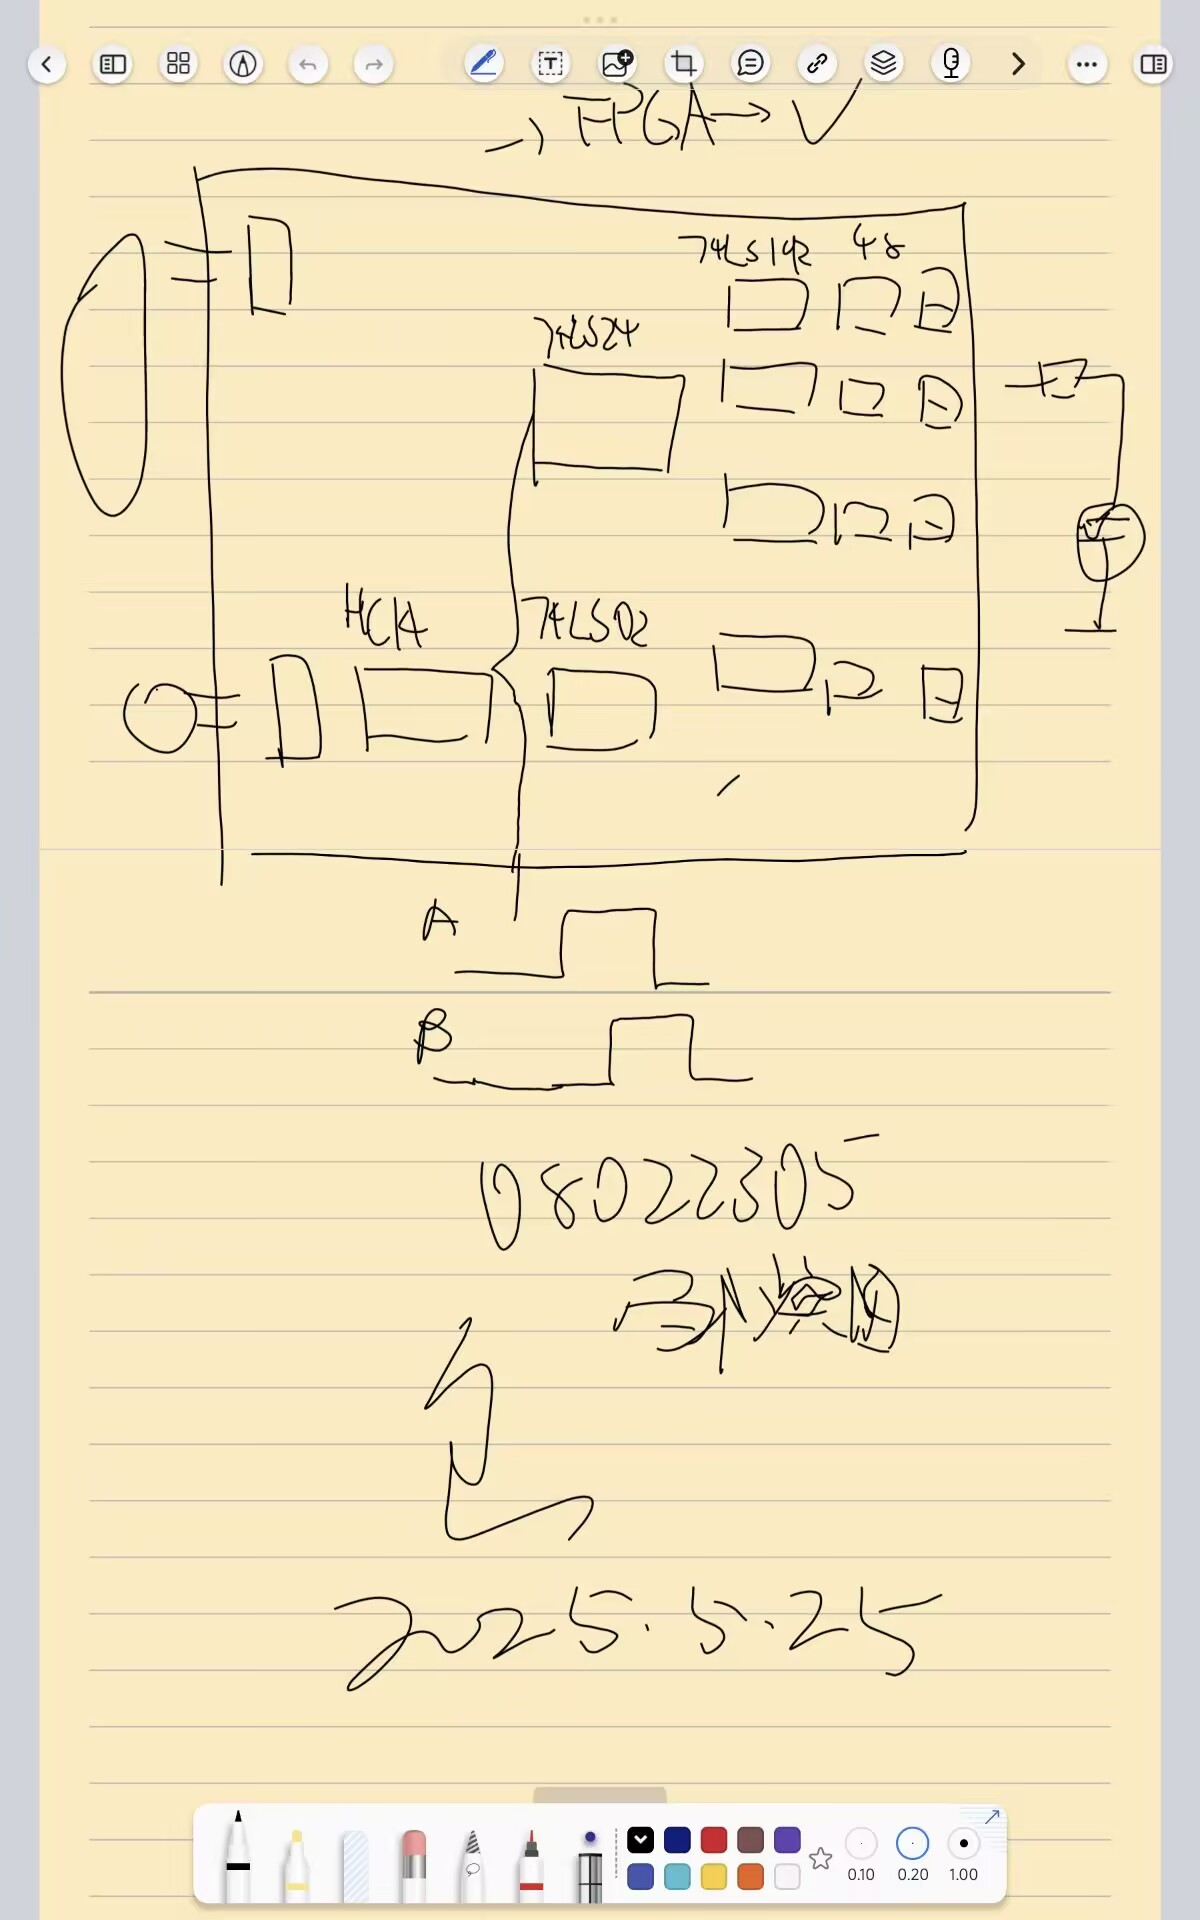 → FPGA → V
74LS192 48
74LS24
HC14 74LS02
A
B
08022305
2025.5.25
0.10 0.20 1.00